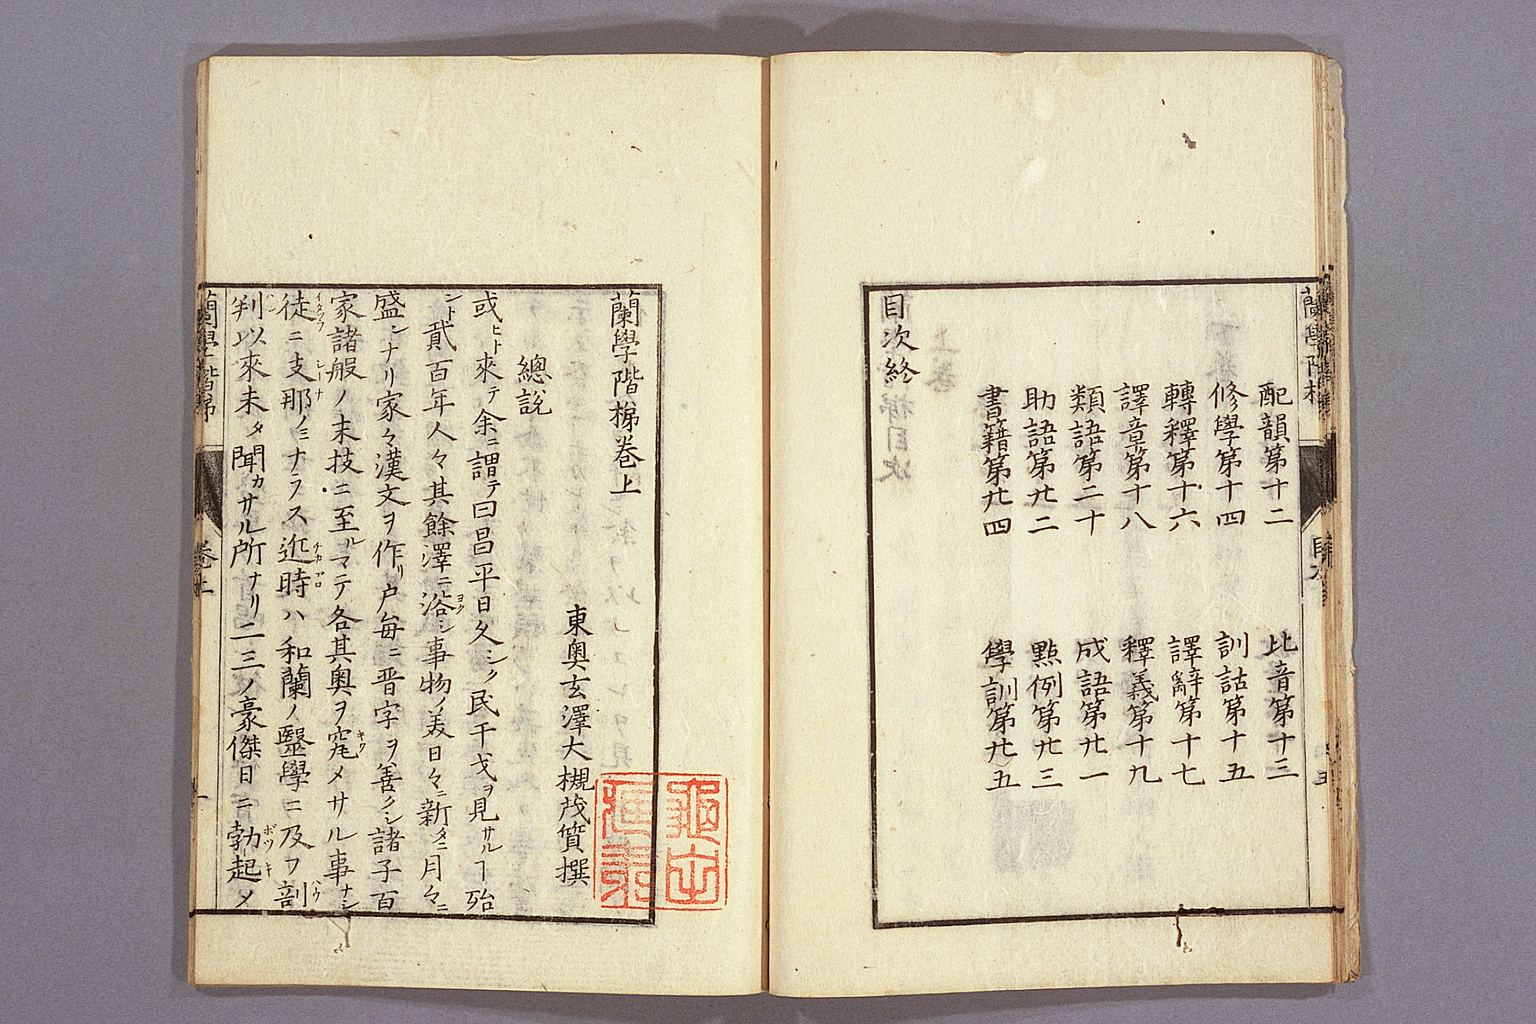 蘭學階梯
配韻第十二 比音第十三
修學第十四 訓詁第十五
轉釋第十六 譯辭第十七
譯章第十八 釋義第十九
類語第二十 成語第廿一
助語第廿二 點例第廿三
書籍第廿四 學訓第廿五
目次終
蘭學階梯卷上
東奧玄澤大槻茂質撰
總說
或ヒト來テ余ニ謂テ曰昌平日久シク民干戈ヲ見サルヿ殆
ント貳百年人々其餘澤ニ浴ヨクシ事物ノ美日々ニ新タニ月々ニ
盛シナリ家々漢文ヲ作リ戶每ニ晋字ヲ善クシ諸子百
家諸般ノ末技ニ至ルマテ各其奧ヲ窕キワメサル事ナシ
徒イタツラニ支那シーナノミナラス近時チカコロハ和蘭ノ毉學ニ及フ剖ハウ
判ハン以來未タ聞カサル所ナリ二三ノ豪傑日ニ勃起ボツキメ
蘭學階梯 卷上 一